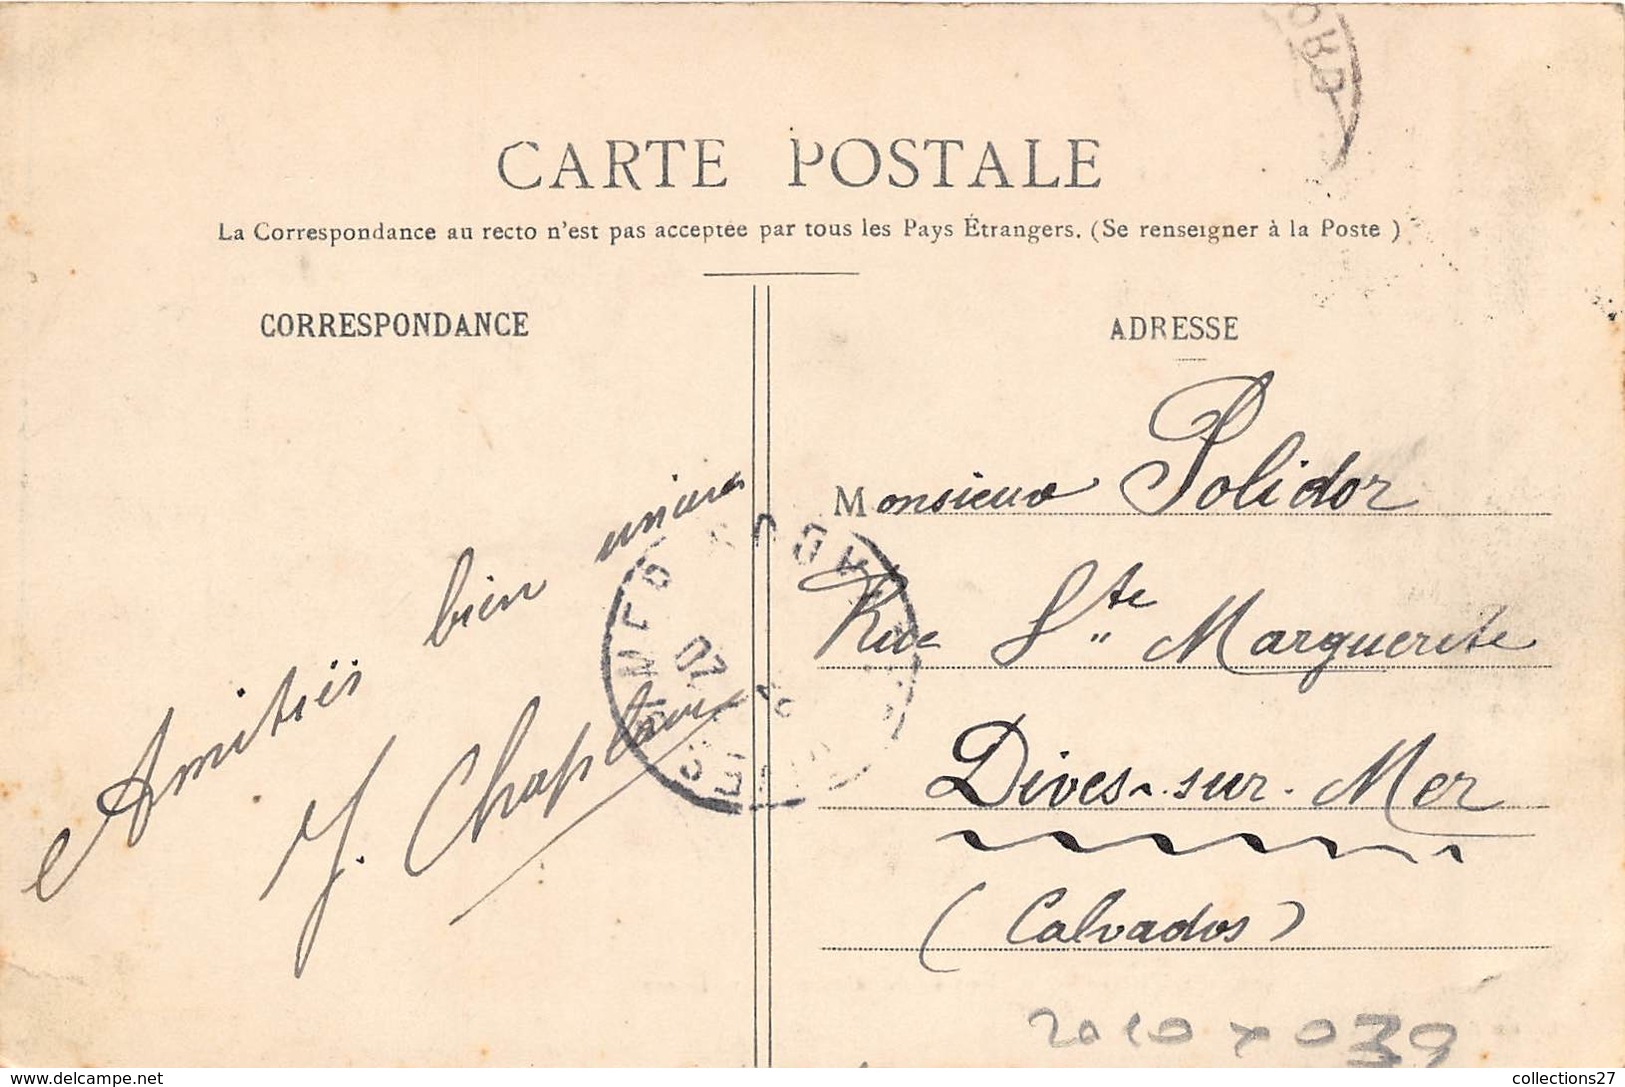 CARTE POSTALE
La Correspondance au recto n'est pas acceptée par tous les Pays Étrangers. (Se renseigner à la Poste )
CORRESPONDANCE
Amitiés bien
J. Chaplain
ADRESSE
Monsieur Polidor
Rue Ste Marguerite
Dives-sur-Mer
(Calvados)
07
collections27